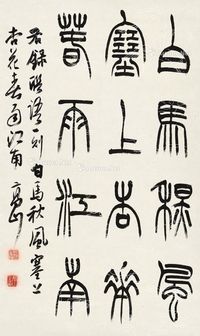 白馬秋風
塞上杏花
春雨江南
右錄聯語一則白馬秋風塞上
杏花春雨江南